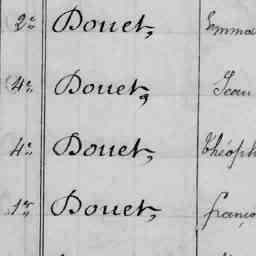 2e Douet, Emma
4e Douet, Jean
4e Douet, Théoph
1er Douet, franço